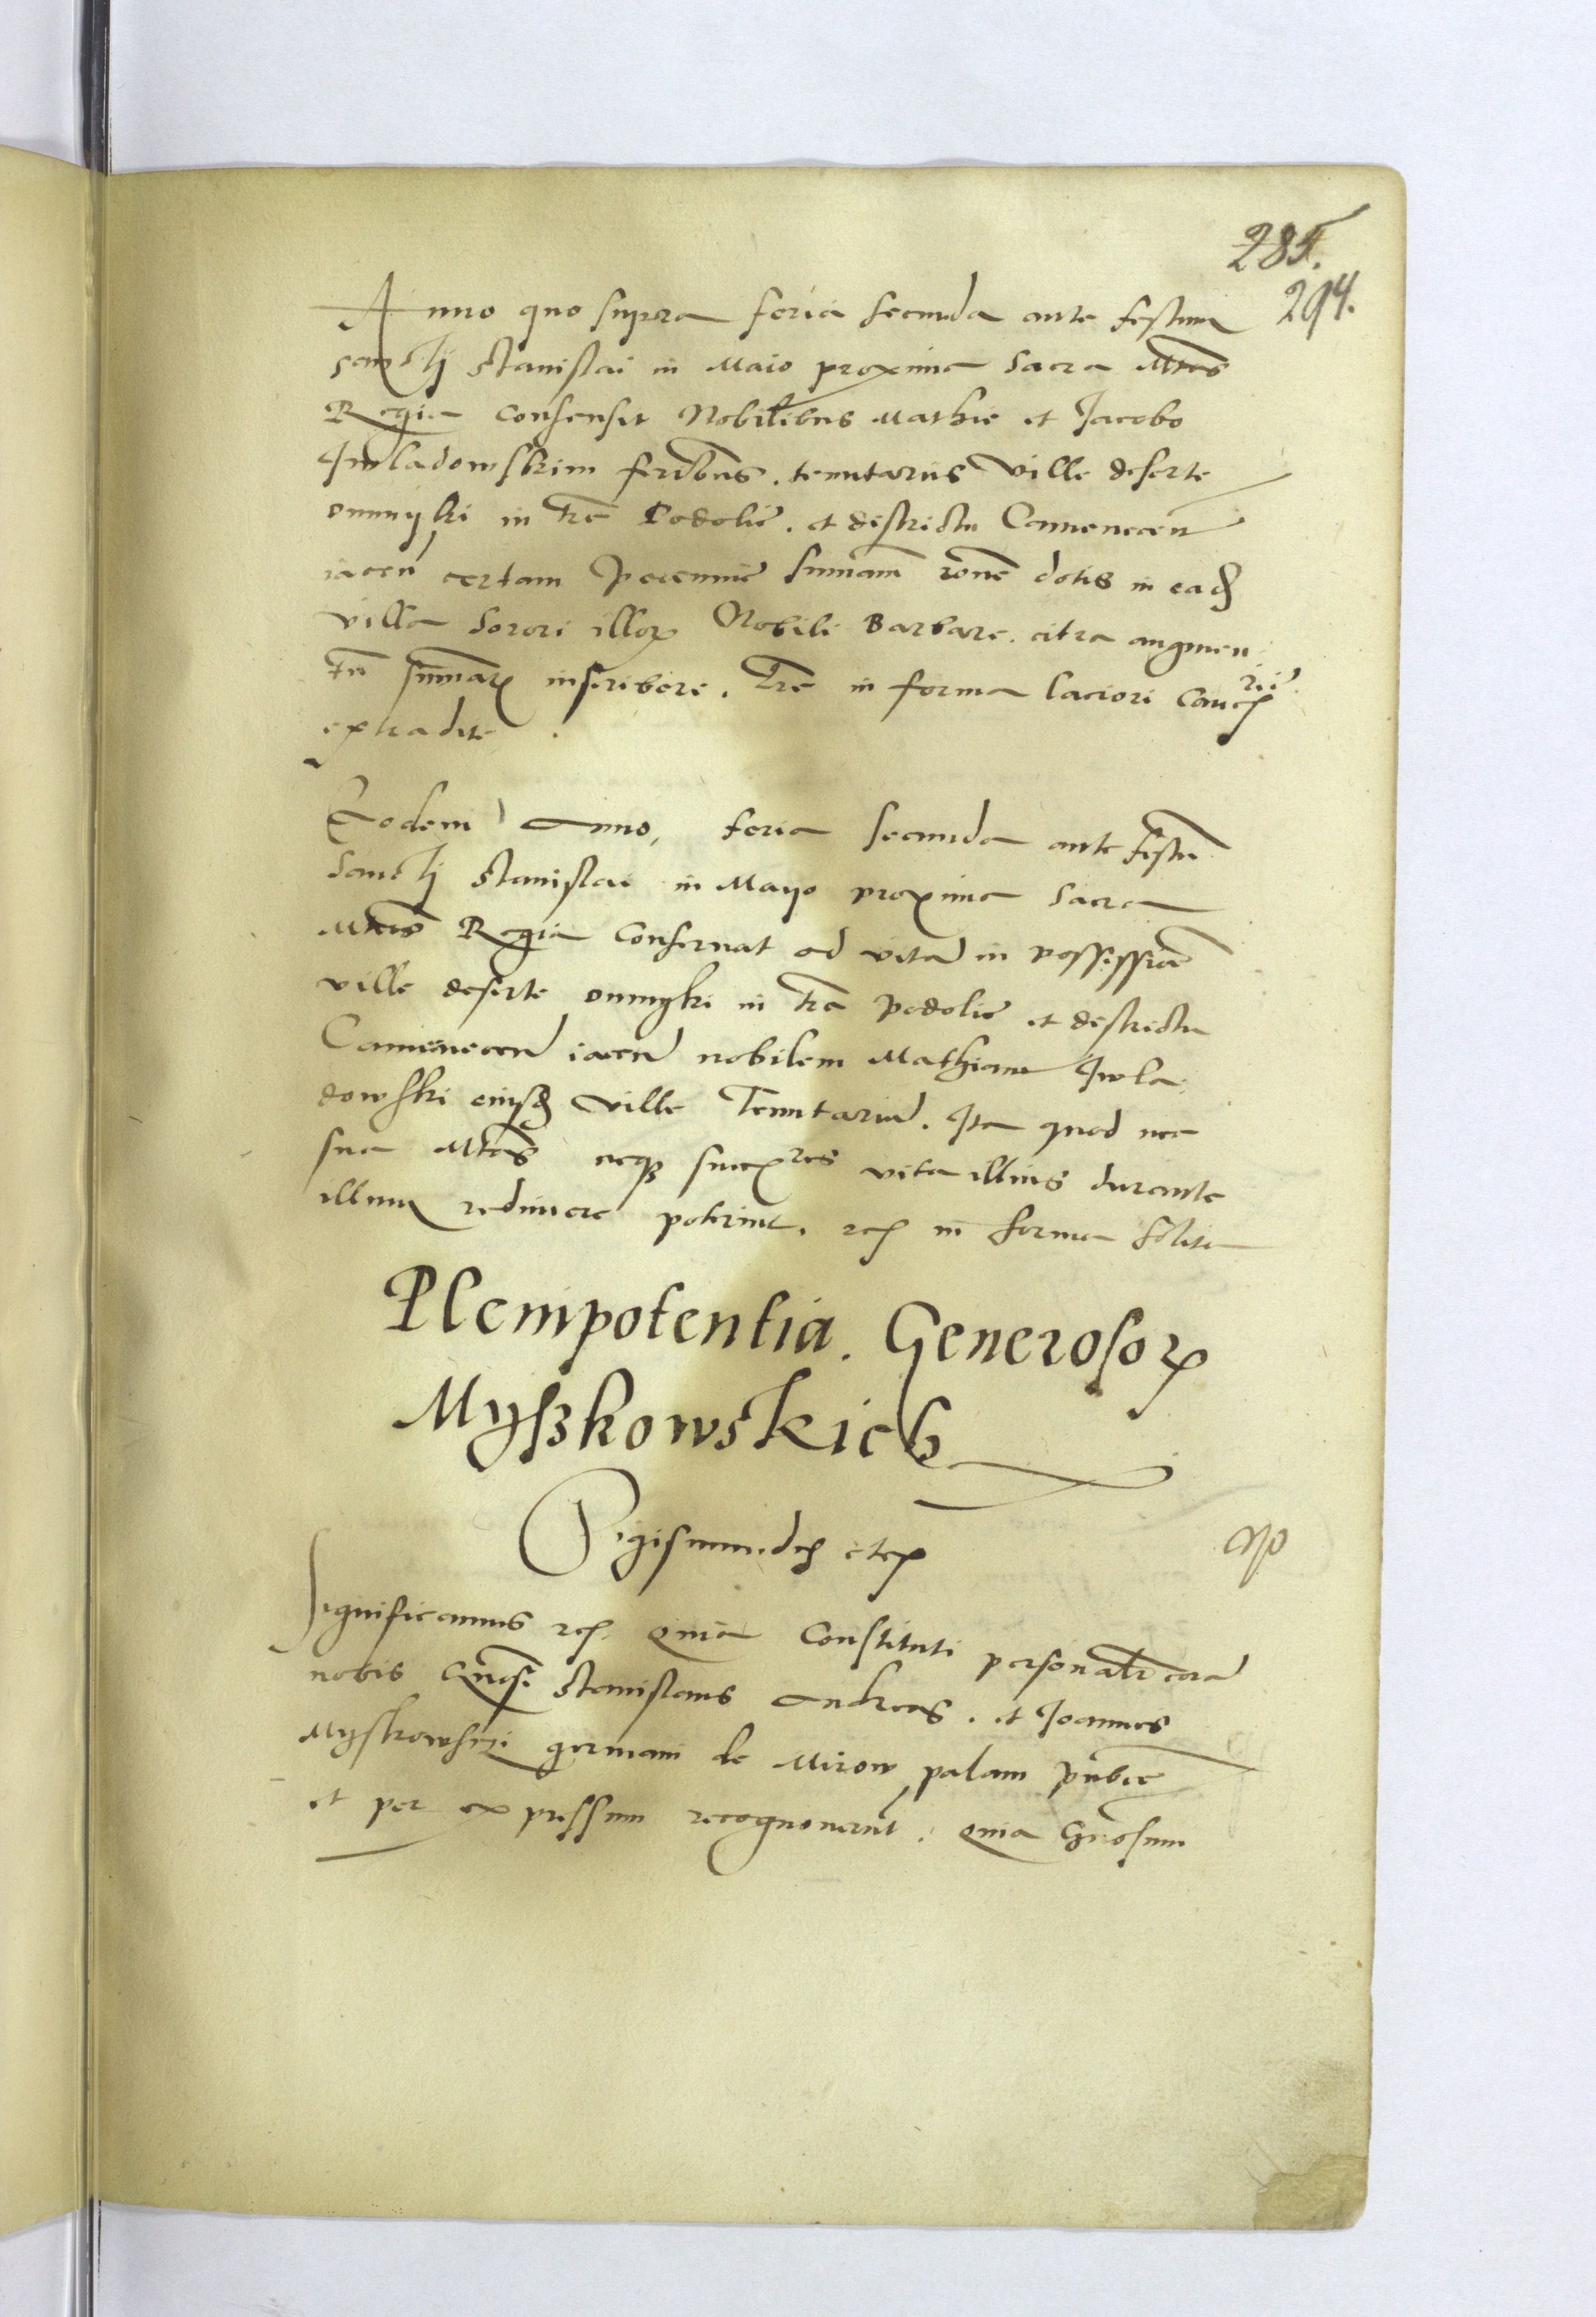 285.
294.
Anno quo supra feria secunda ante festum
sanctj Stanislai in Maio proxima Sacra Mtas
Regia consensit Nobilibus Mathie et Jacobo
Jwladowskim frībus. tenutariis ville deserte
in trā Podolie. et districtu Camenecen
iacen certam pecunie summam rōne dotis in eadē
villa Sorori illorꝫ Nobili Barbare. citra augmen
tū summarꝫ inscribere. Lrē in forma laciori Cancrie
extradite.
Eodem Anno, feria secunda ante festū
Sanctj Stanislai in Mayo proxima Sacra
Mtas Regia conservat ad vitā in possessiōe
ville deserte in trā podolie et districtu
Camenecen iacen nobilem Mathiam Jwla
dowski eiusdē ville Tenutariū. Ita quod nec
sua Mtas neqꝫ succres vita illius durante
illum redimere poterint. etc in forma solita
Plenipotentia. Generosorꝫ
Myßkowskich
Sigismundus etc
Significamus etc. Quia Constituti personalr corā
nobis Gnosi Stanislaus Andreas. et Joannes
Myskowsczi germani de Mirow palam publice
et per expressum recognoverūt. Quia Gnosum